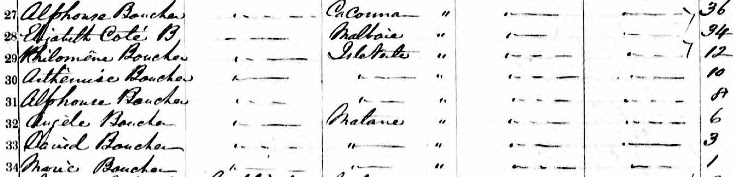 27 Alphonse Boucher " — Cacouna " " — " — 36
28 Elizabeth Coté B " — Malbaie " " — " — 34
29 Philomène Boucher " — Isle Verte " " — " — 12
30 Arthémise Boucher " — " — " " — " — 10
31 Alphonse Boucher " — " — " " — " — 8
32 Angèle Boucher " — Matane " " — " — 6
33 David Boucher " — " — " " — " — 3
34 Marie Boucher " — " — " " — " — 1